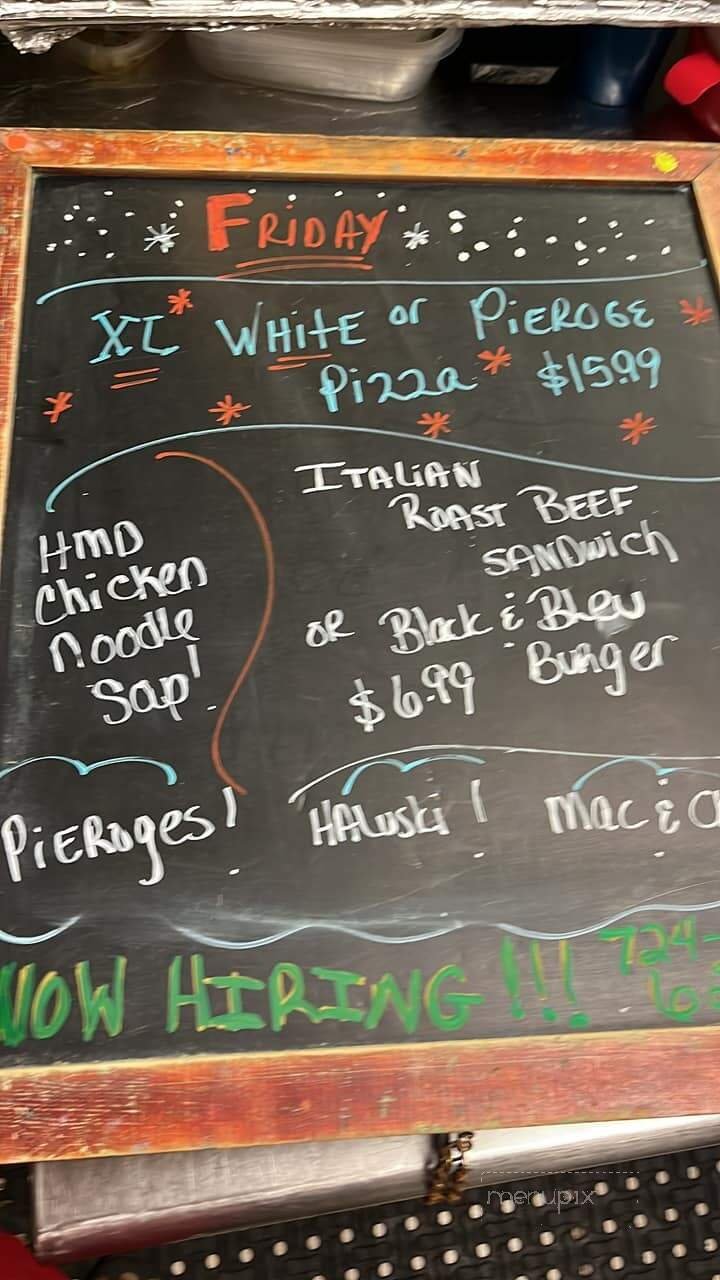 FRIDAY
XL WHITE or PIEROGE
Pizza $15.99
HMD
Chicken
Noodle
Sop!
ITALIAN
ROAST BEEF
SANDWICH
OR Black & Bleu
$6.99 Burger
PiERoges! HALuski! Mac &
NOW HIRING!!! 724-
menupix